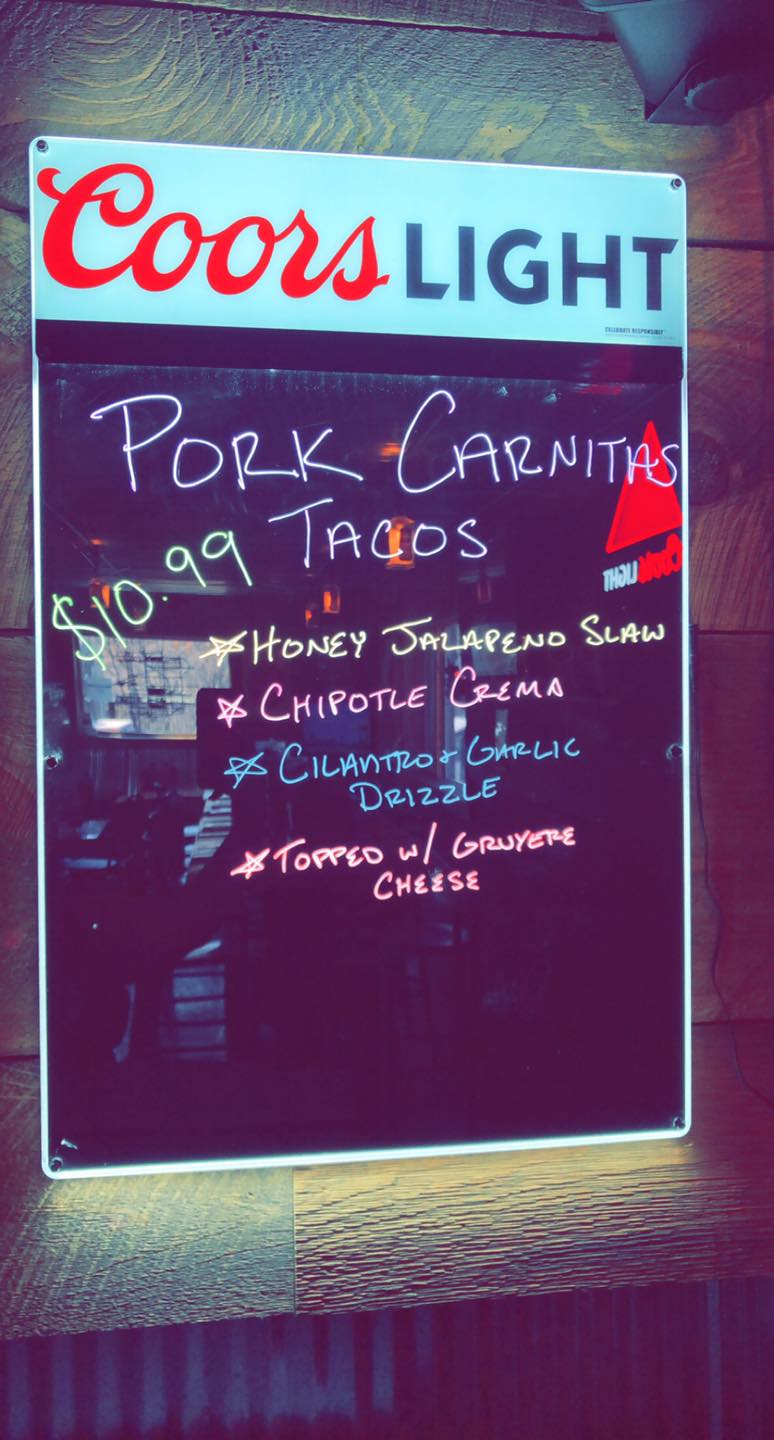 Coors LIGHT
CELEBRATE RESPONSIBLY
PORK CARNITAS
TACOS
$10.99
☆ HONEY JALAPENO SLAW
☆ CHIPOTLE CREMA
☆ CILANTRO & GARLIC
DRIZZLE
☆ TOPPED W/ GRUYERE
CHEESE
Coors LIGHT